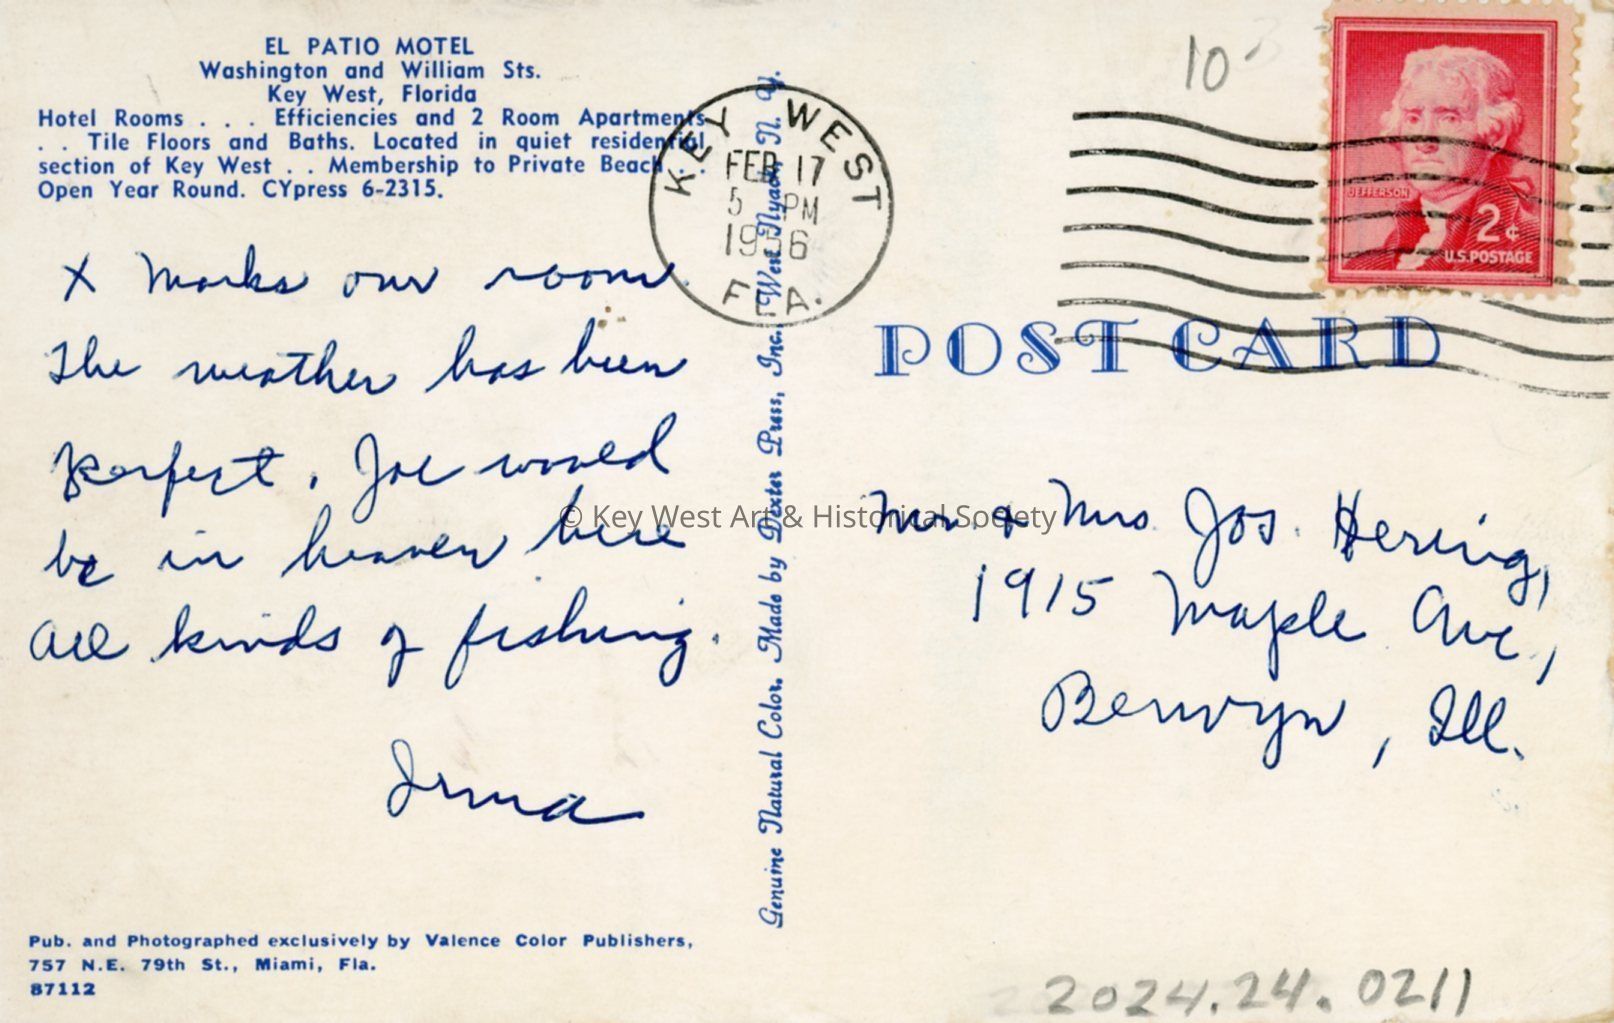 EL PATIO MOTEL
Washington and William Sts.
Key West, Florida
Hotel Rooms . . . Efficiencies and 2 Room Apartments
. . Tile Floors and Baths. Located in quiet residential
section of Key West . . Membership to Private Beach . .
Open Year Round. CYpress 6-2315.
X marks our room.
The weather has been
perfect. Joe would
be in heaven here
all kinds of fishing.
Irma
Pub. and Photographed exclusively by Valence Color Publishers,
757 N.E. 79th St., Miami, Fla.
87112
Genuine Natural Color. Made by Dexter Press, Inc. West Nyack, N. Y.
KEY WEST
FEB 17
5 PM
1956
FLA.
10
JEFFERSON
2¢
U.S. POSTAGE
POST CARD
© Key West Art & Historical Society
Mr. & Mrs. Jos. Hering,
1915 Maple Ave.,
Berwyn, Ill.
2024.24.0211